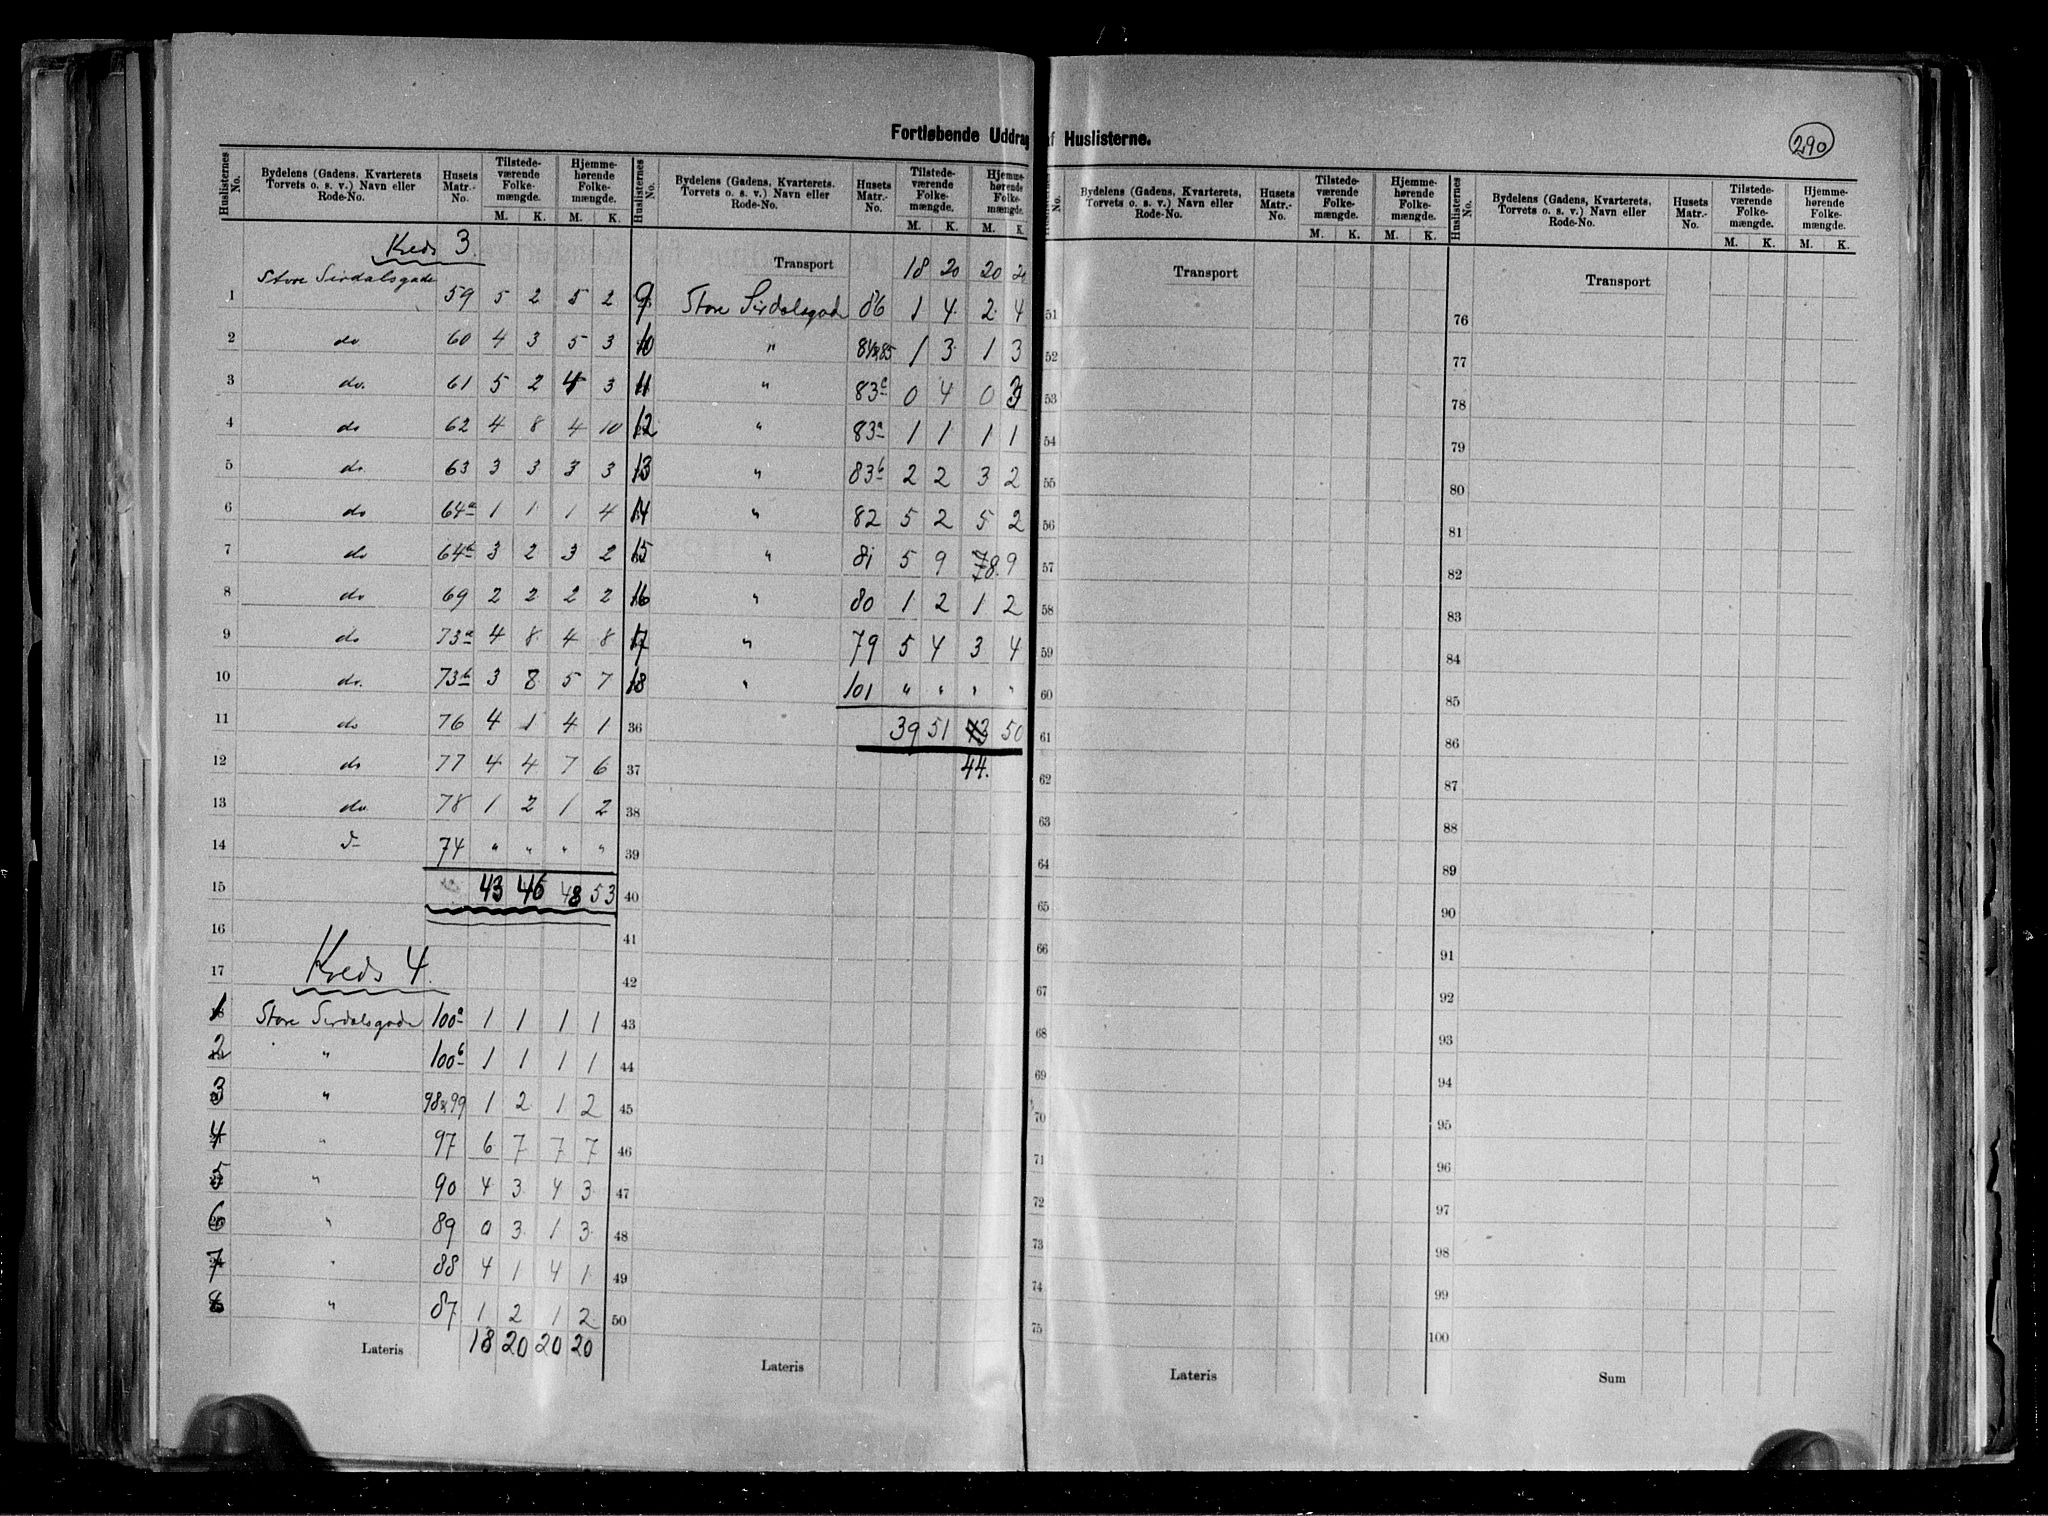 Fortløbende Uddrag af Huslisterne.
290
Huslisternes No. | Bydelens (Gadens, Kvarterets, Torvets o. s. v.) Navn eller Rode-No. | Husets Matr.-No. | Tilstedeværende Folkemængde. M. K. | Hjemmehørende Folkemængde. M. K.
Kreds 3.
1 Store Sirdalsgade 59 5 2 5 2
2 do 60 4 3 5 3
3 do. 61 5 2 4 3
4 do 62 4 8 4 10
5 do. 63 3 3 3 3
6 do 64a 1 1 1 4
7 do 64b 3 2 3 2
8 do 69 2 2 2 2
9 do 73a 4 8 4 8
10 do. 73b 3 8 5 7
11 do 76 4 1 4 1
12 do 77 4 4 7 6
13 do. 78 1 2 1 2
14 do 74 " " " "
15 43 46 48 53
16
17 Kreds 4.
1 Store Sirdalsgade 100a 1 1 1 1
2 " 100b 1 1 1 1
3 " 98&99 1 2 1 2
4 " 97 6 7 7 7
5 " 90 4 3 4 3
6 " 89 0 3 1 3
7 " 88 4 1 4 1
8 " 87 1 2 1 2
Lateris 18 20 20 20
Huslisternes No. | Bydelens (Gadens, Kvarterets, Torvets o. s. v.) Navn eller Rode-No. | Husets Matr.-No. | Tilstedeværende Folkemængde. M. K. | Hjemmehørende Folkemængde. M. K.
Transport 18 20 20 20
9 Store Sirdalsgade 86 1 4 2 4
10 " 84&85 1 3 1 3
11 " 83c 0 4 0 3
12 " 83a 1 1 1 1
13 " 83b 2 2 3 2
14 " 82 5 2 5 2
15 " 81 5 9 8. 9
16 " 80 1 2 1 2
17 " 79 5 4 3 4
18 " 101 " " " "
36 39 51 43 50
37 44.
38
39
40
41
42
43
44
45
46
47
48
49
50
Lateris
Huslisternes No. | Bydelens (Gadens, Kvarterets, Torvets o. s. v.) Navn eller Rode-No. | Husets Matr.-No. | Tilstedeværende Folkemængde. M. K. | Hjemmehørende Folkemængde. M. K.
Transport
51
52
53
54
55
56
57
58
59
60
61
62
63
64
65
66
67
68
69
70
71
72
73
74
75
Lateris
Huslisternes No. | Bydelens (Gadens, Kvarterets, Torvets o. s. v.) Navn eller Rode-No. | Husets Matr.-No. | Tilstedeværende Folkemængde. M. K. | Hjemmehørende Folkemængde. M. K.
Transport
76
77
78
79
80
81
82
83
84
85
86
87
88
89
90
91
92
93
94
95
96
97
98
99
100
Sum